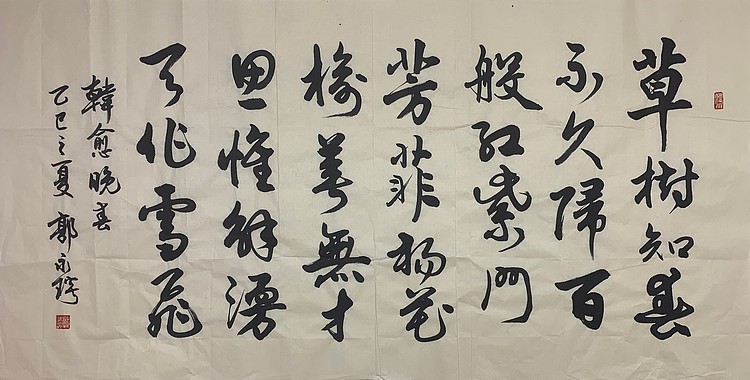 草樹知春
不久歸百
般紅紫鬥
芳菲楊花
榆莢無才
思惟解漫
天作雪飛
韓愈晚春
乙巳之夏 郭永